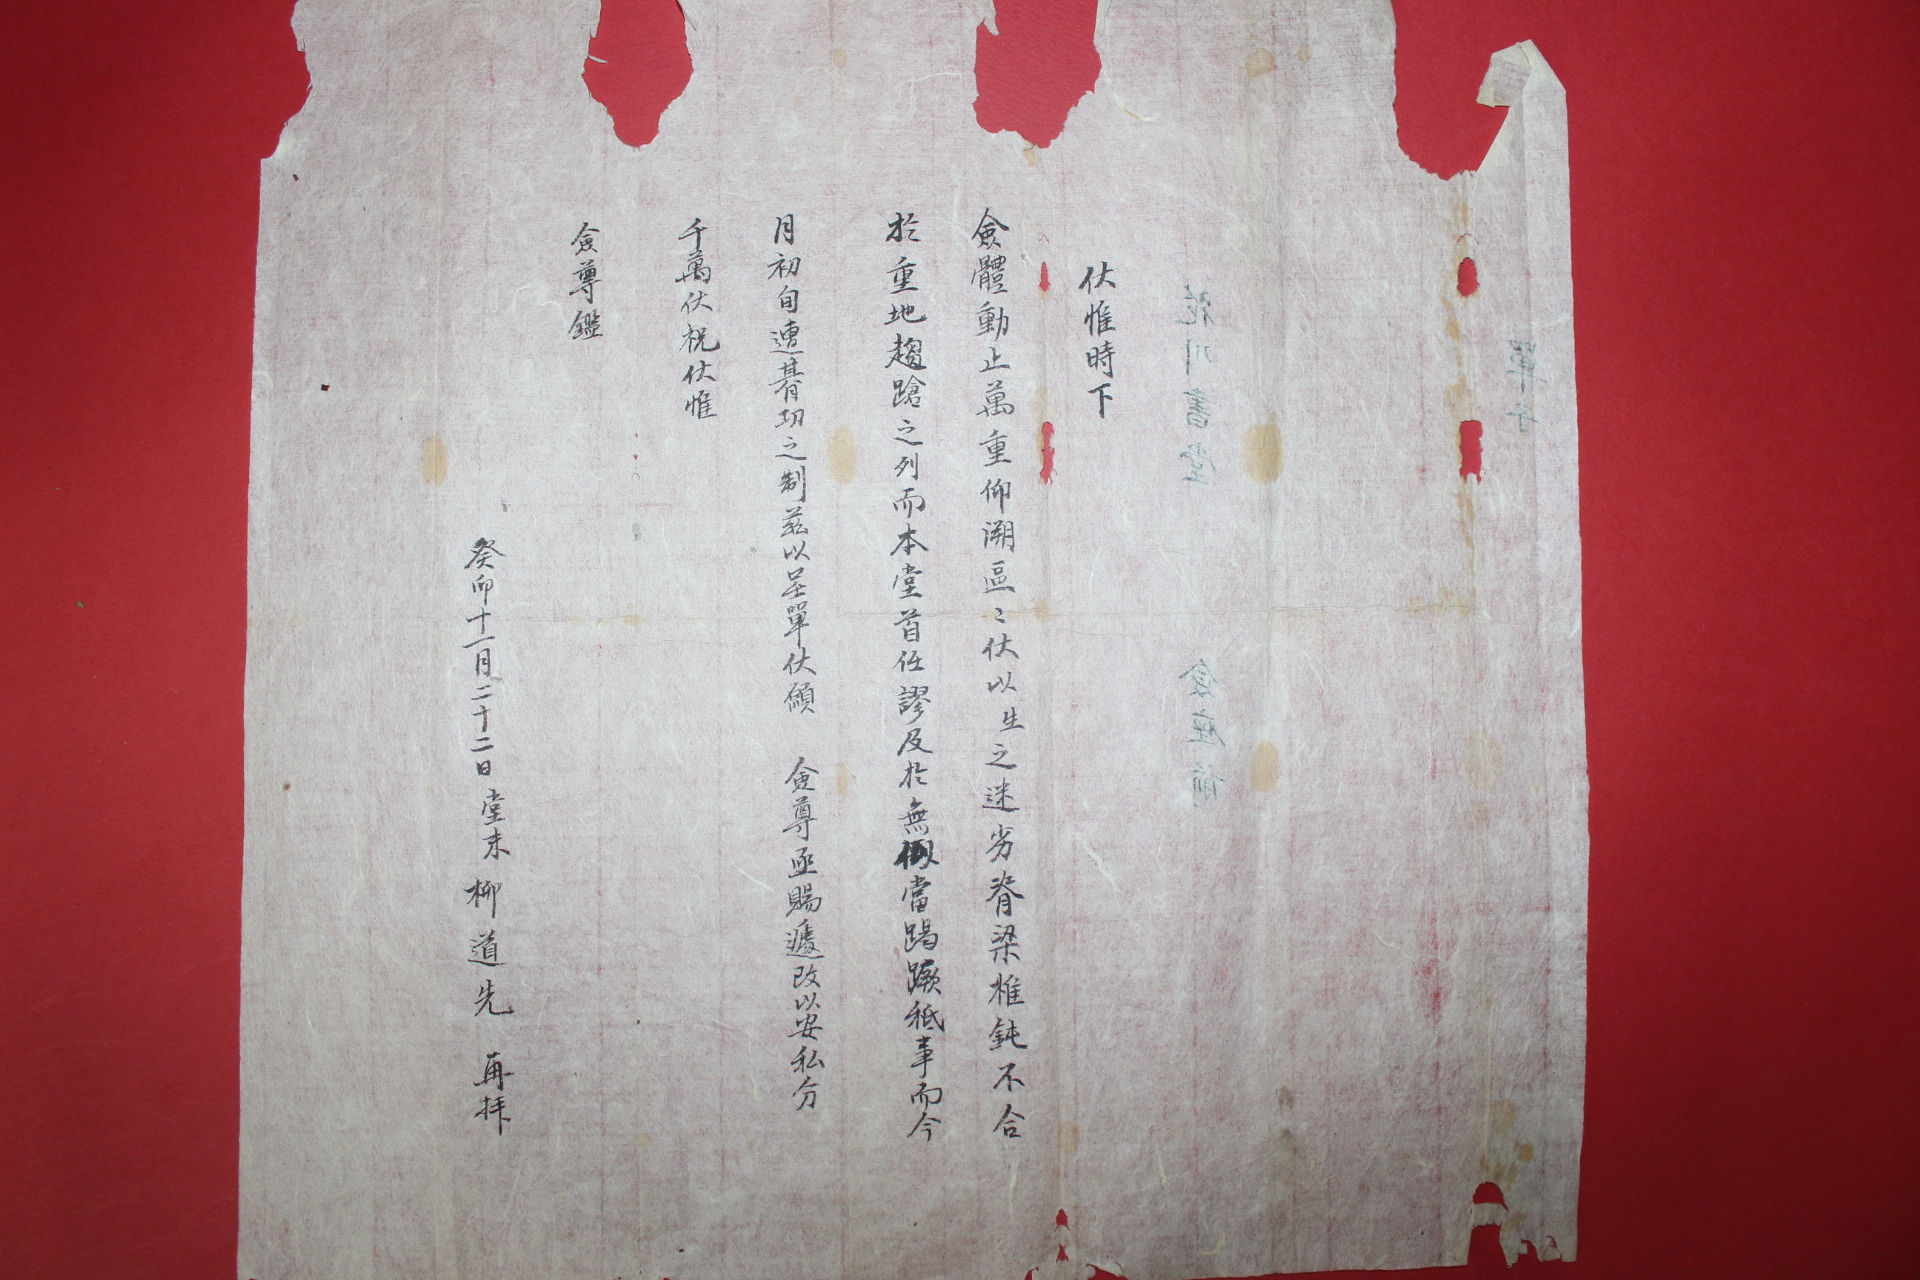 單子
花川書堂 僉座前
伏惟時下
僉體動止萬重仰溯區〻伏以生之迷劣脊梁椎鈍不合
於重地趨蹌之列而本堂首任謬及於無 當踢蹶秪事而今
月初旬連朞功之制茲以呈單伏願 僉尊亟賜遞改以安私分
千萬伏祝伏惟
僉尊鑑
癸卯十一月二十二日堂末柳道先 再拜